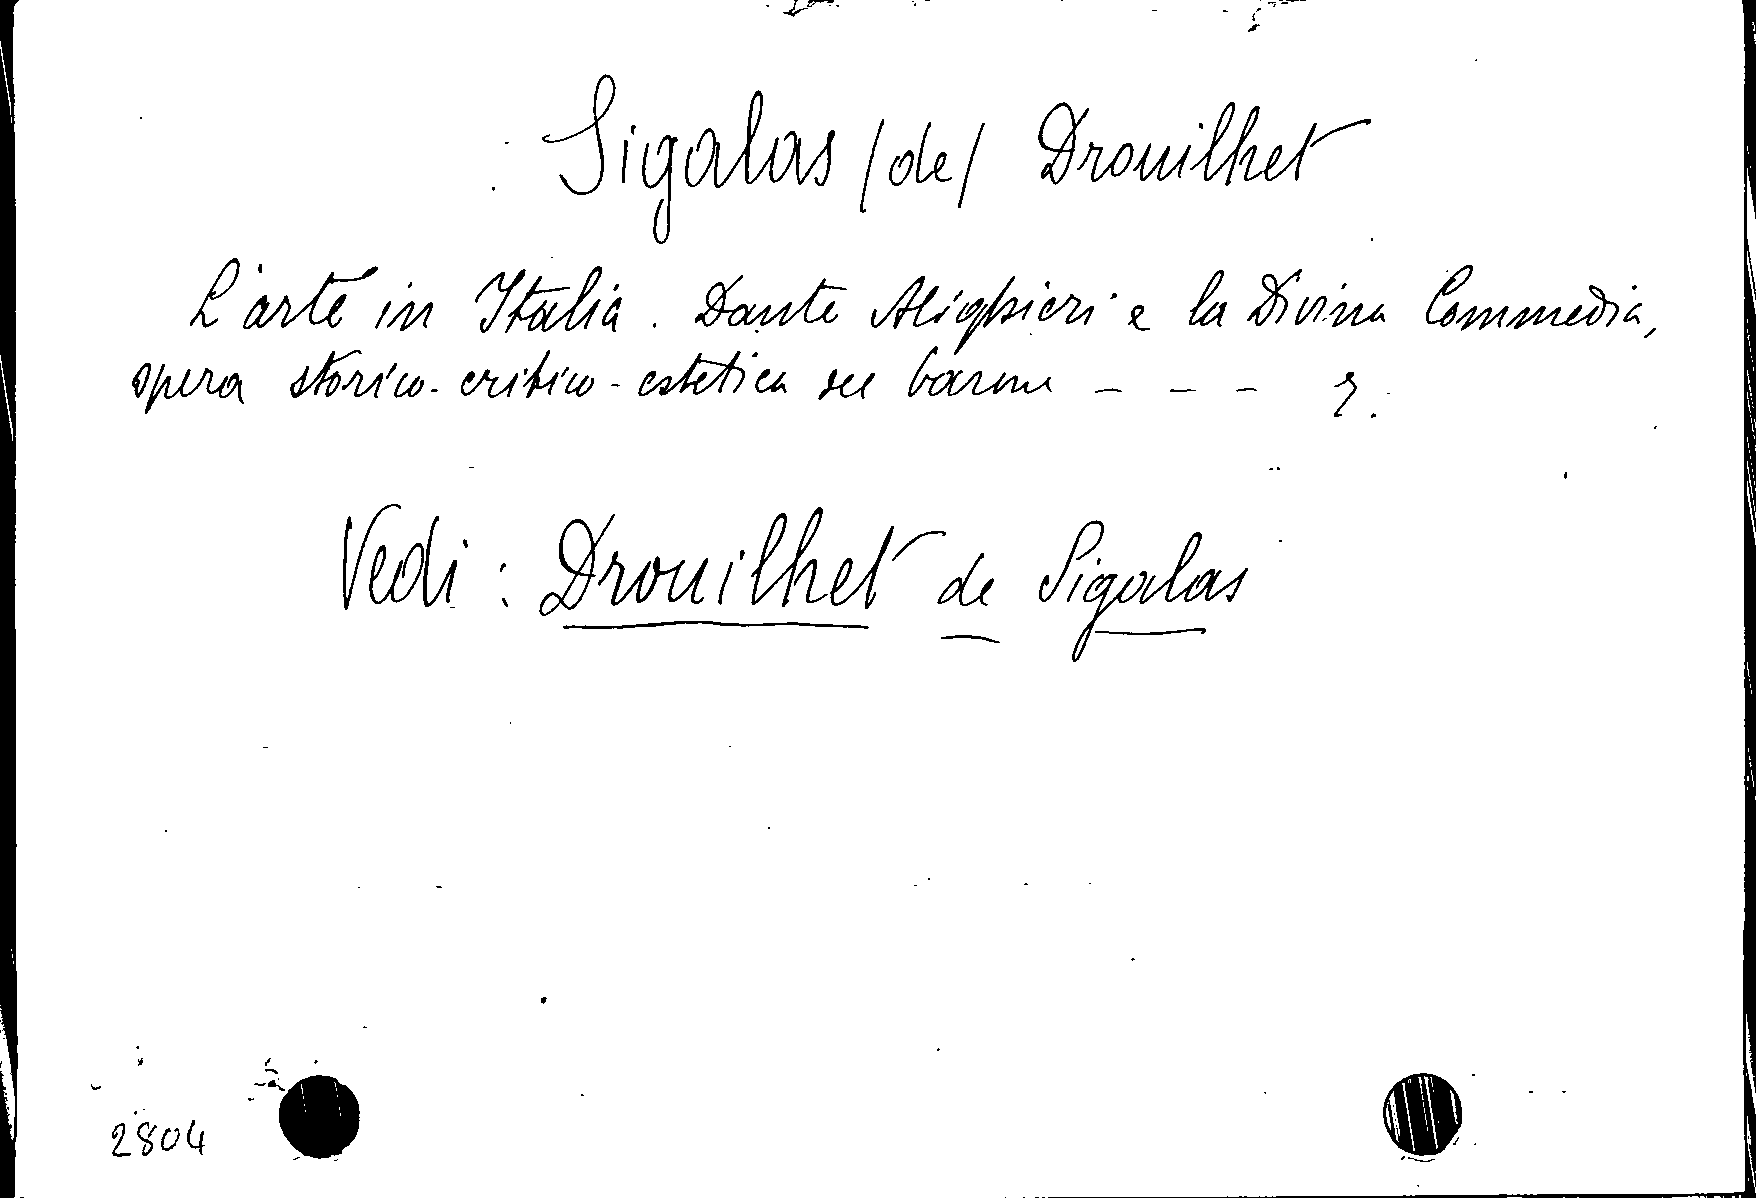 Sigalas /de/ Drouilhet
L'arte in Italia. Dante Alighieri e la Divina Commedia,
opera storico-critico-estetica del barone - - -
Vedi: Drouilhet de Sigalas
2804